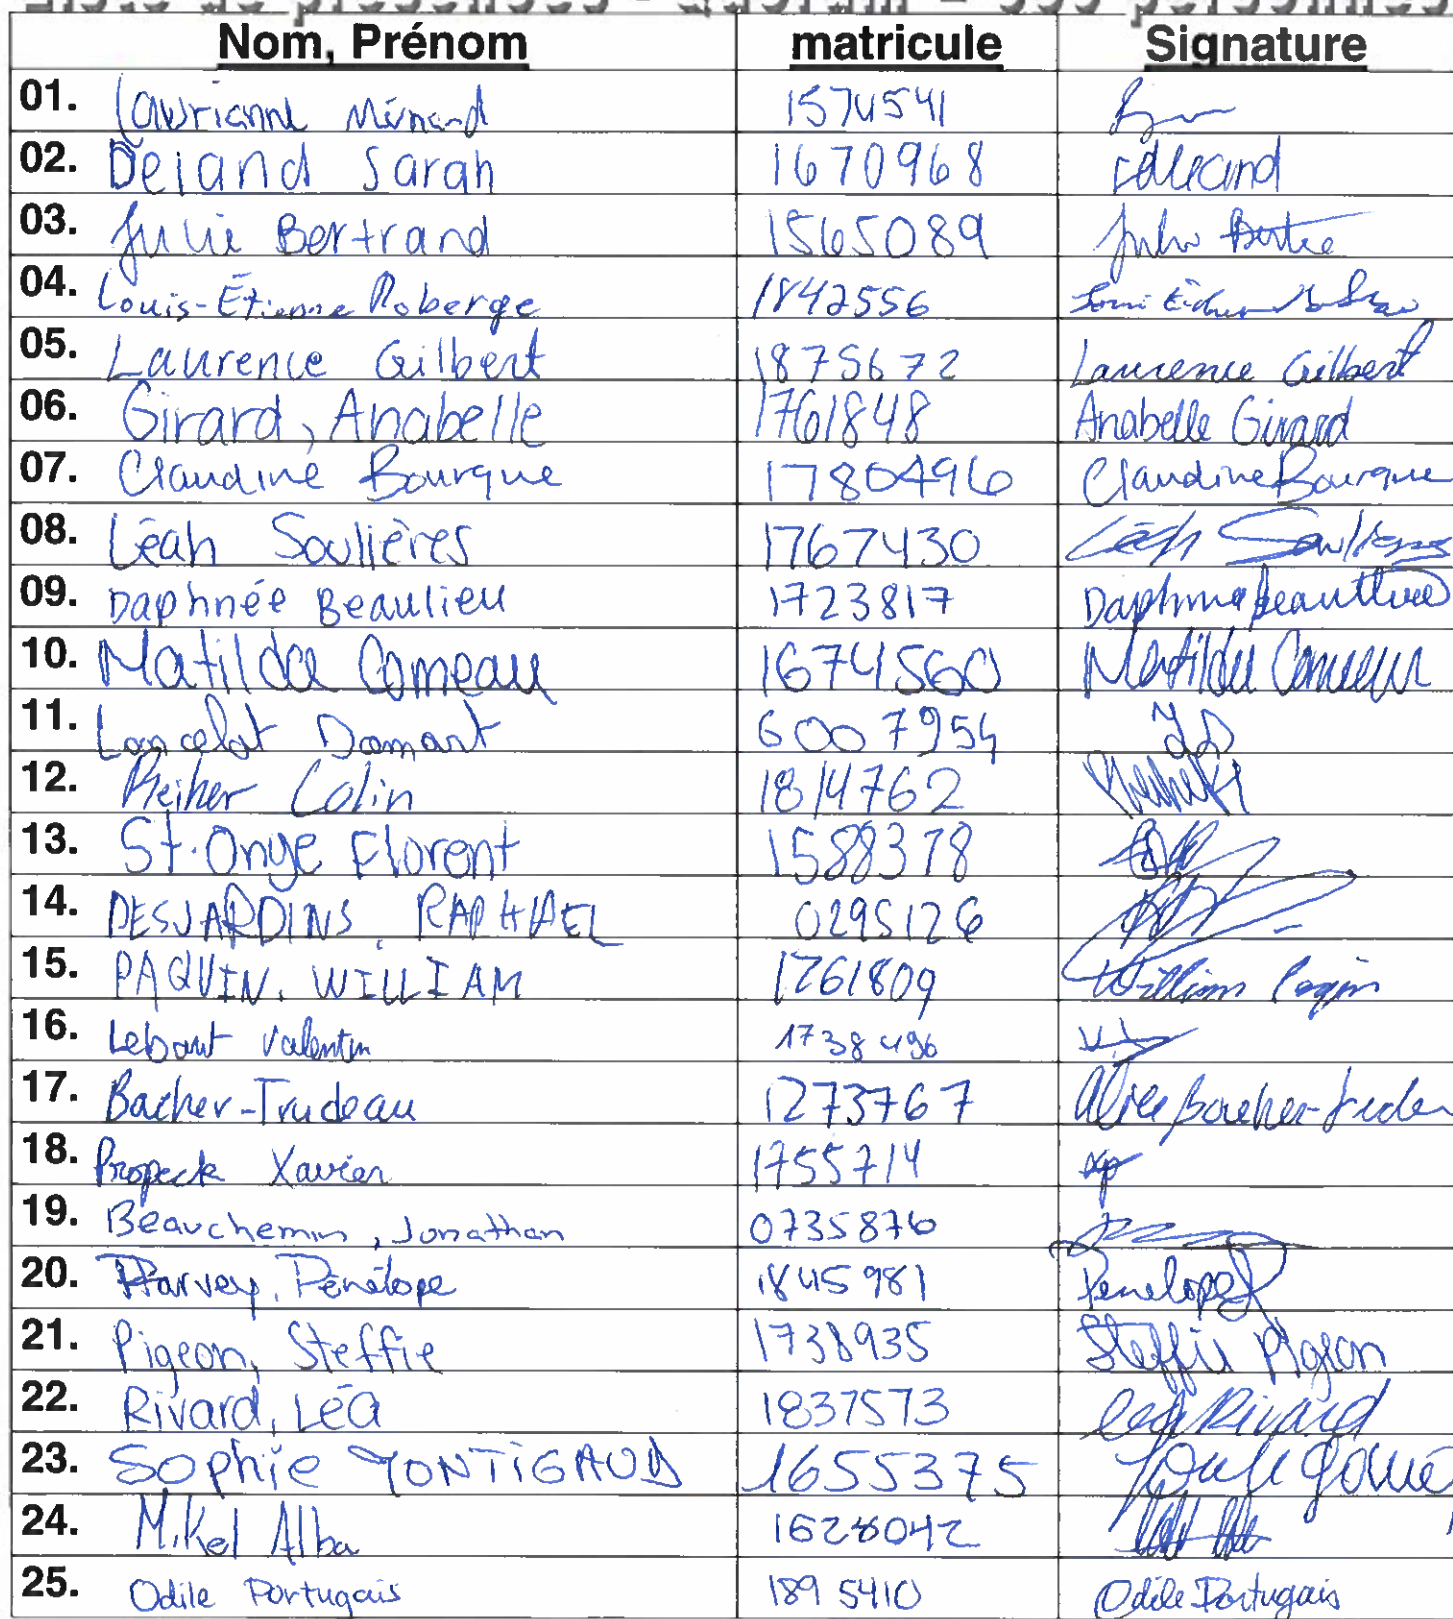 Liste de présences - Quorum = 353 personnes
Nom, Prénom matricule Signature
01. Laurianne Ménard 1574541
02. Déland Sarah 1670968
03. Julie Bertrand 1565089 Julie
04. Louis-Étienne Roberge 1842556
05. Laurence Gilbert 1875672 Laurence Gilbert
06. Girard, Anabelle 1761848 Anabelle Girard
07. Claudine Bourque 1780496 Claudine Bourque
08. Léah Soulières 1767430 Léah Soulières
09. Daphnée Beaulieu 1723817 Daphnée Beaulieu
10. Matilda Comeau 1674560 Matilda Comeau
11. Lancelot Damant 6007954 LD
12. Reiher Colin 1814762
13. St-Onge Florent 1588378
14. DESJARDINS, RAPHAEL 0295126
15. PAQUIN, WILLIAM 1761809 William Paquin
16. Valentin 1738496
17. Bacher-Trudeau 1273767 Alice Bacher-Trudeau
18. Propeck Xavier 1755714 xp
19. Beauchemin, Jonathan 0735876
20. Harvey, Pénélope 1845981 Penelope
21. Pigeon, Steffie 1738935 Steffie Pigeon
22. Rivard, Léa 1837573 Léa Rivard
23. Sophie 1655375
24. Mikel Alba 1628042
25. Odile Portugais 1895410 Odile Portugais